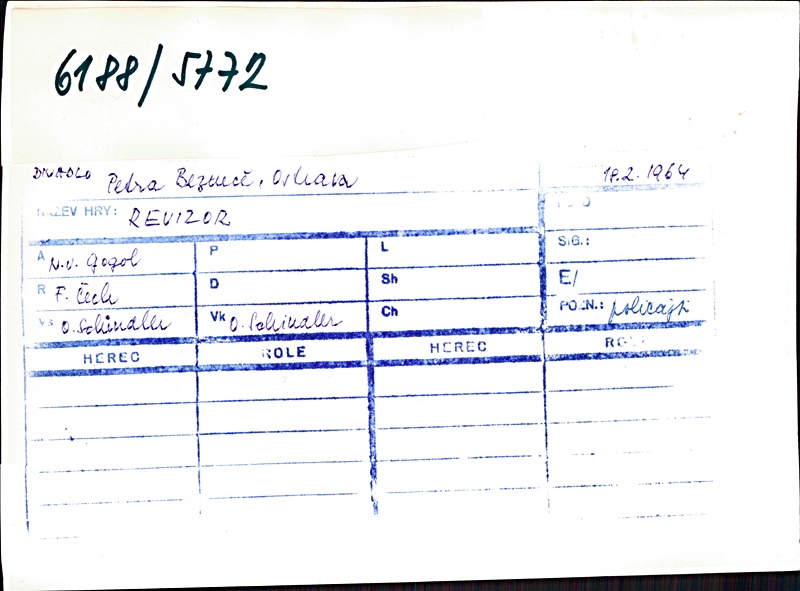 6188/5772
DIVADLO Petra Bezruče, Ostrava 18.2.1964
NÁZEV HRY: REVIZOR
A N.V. Gogol P L SIG.:
R F. Čech D Sh E/
Vs O. Schindler Vk O. Schindler Ch POZN.: policajti
HEREC ROLE HEREC ROLE